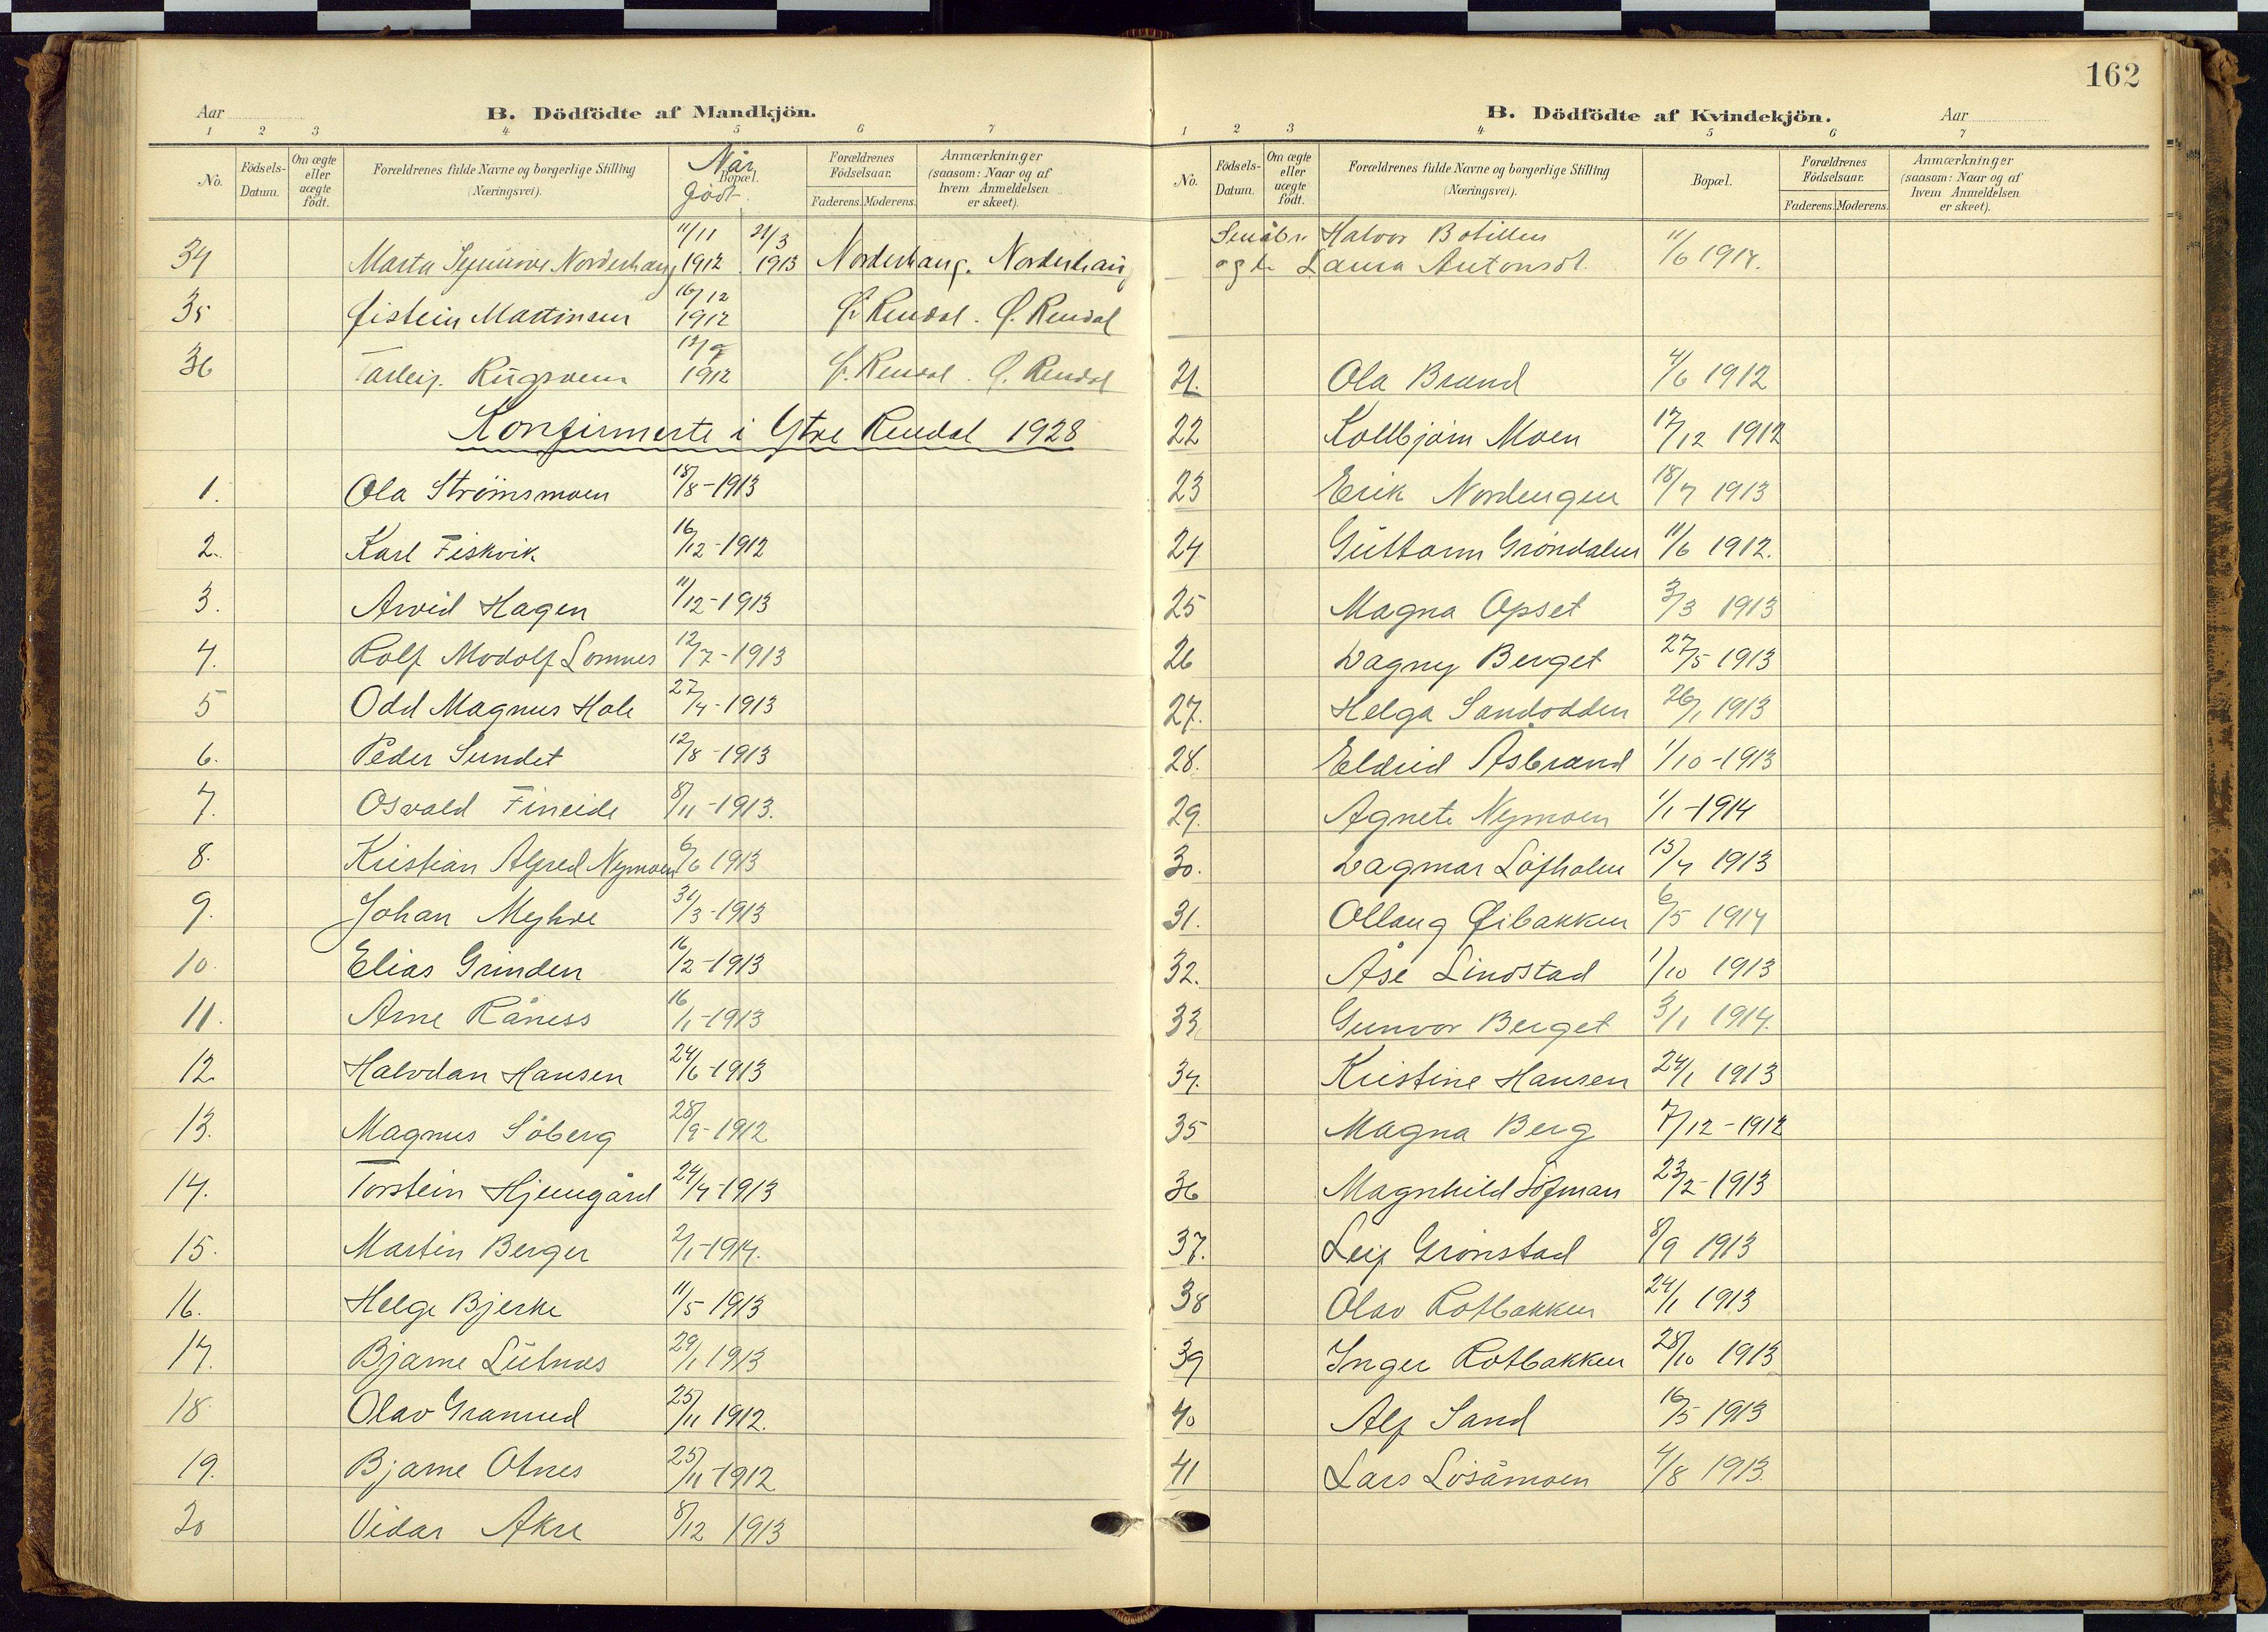 Aar
B. Dödfödte af Mandkjön.
1 2 3 4 5 6 7
No.
Födsels-Datum.
Om ægte eller uægte födt.
Forældrenes fulde Navne og borgerlige Stilling (Næringsvei).
Bopæl.
Når født
Forældrenes Födselsaar.
Faderens. Moderens.
Anmærkninger (saasom: Naar og af hvem Anmeldelsen er skeet).
34 Marta Norderhaug 11/11 1912 21/3 1913 Norderhaug. Norderhaug
35 Øistein Martinsen 16/12 1912 Ø. Rendal. Ø. Rendal
36 1912 Ø. Rendal. Ø. Rendal
Konfirmerte i Ytre Rendal 1928
1. Ola Strømsmoen 18/8-1913
2. Karl Fiskvik 16/12-1912
3. Arvid Hagen 11/12-1913
4. Rolf Modolf Lomnes 12/7-1913
5 Odd Magnus Hole 27/4-1913
6. Peder Sundet 12/8-1913
7. Osvald Fineide 8/11-1913.
8. Kristian Alfred Nymoen 6/6 1913
9. Johan Myhre 31/3-1913
10. Elias Grinden 16/2-1913
11. Arne Råness 16/1-1913
12. Halvdan Hansen 24/6-1913
13. Magnus Söberg 28/9-1912
14. Torstein Hjemgård 24/4-1913
15. Martin Berger 2/1-1914.
16. Helge Bjerke 11/5 1913
17. Bjarne Lutnes 29/1 1913
18. Olav Granrud 25/11 1912.
19. Bjarne Otnes 25/11-1912
20 Vidar Akre 8/12 1913
162
B. Dödfödte af Kvindekjön.
Aar
1 2 3 4 5 6 7
No.
Födsels-Datum.
Om ægte eller uægte födt.
Forældrenes fulde Navne og borgerlige Stilling (Næringsvei).
Bopæl.
Forældrenes Födselsaar.
Faderens. Moderens.
Anmærkninger (saasom: Naar og af hvem Anmeldelsen er skeet).
Småbr. Halvor Botillen
og h. Laura Antonsdt. 11/6 1914.
21. Ola Brænd 4/6 1912
22 Kolbjørn Moen 17/12 1912
23 Erik Nordengen 18/7 1913
24 Guttorm Gröndalen 11/6 1912.
25 Magna Opset 3/3 1913
26 Dagny Berget 27/5 1913
27. Helga Sandodden 26/1 1913
28. Eldrid Åsbrand 1/10-1913
29. Agnete Nymoen 1/1-1914
30. Dagmar Löfholm 1913
31. Ollaug Øibakken 6/5 1914
32. Åse Lindstad 1/10 1913
33 Gunvor Berget 3/1 1914.
34. Kristine Hansen 24/1 1913
35 Magna Berg 7/12-1912
36 Magnhild Löfman 23/2-1913
37. Leif Grönstad 8/9 1913
38 Olav Rotbakken 24/1 1913
39 Inger Rotbakken 28/10 1913
40 Alf Sand 16/5 1913
41 Lars Lösåmoen 4/8 1913.